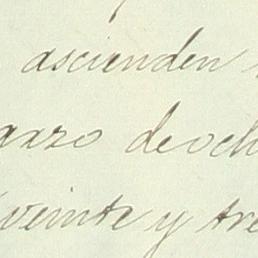 ascienden
arzo de och
veinte y tre